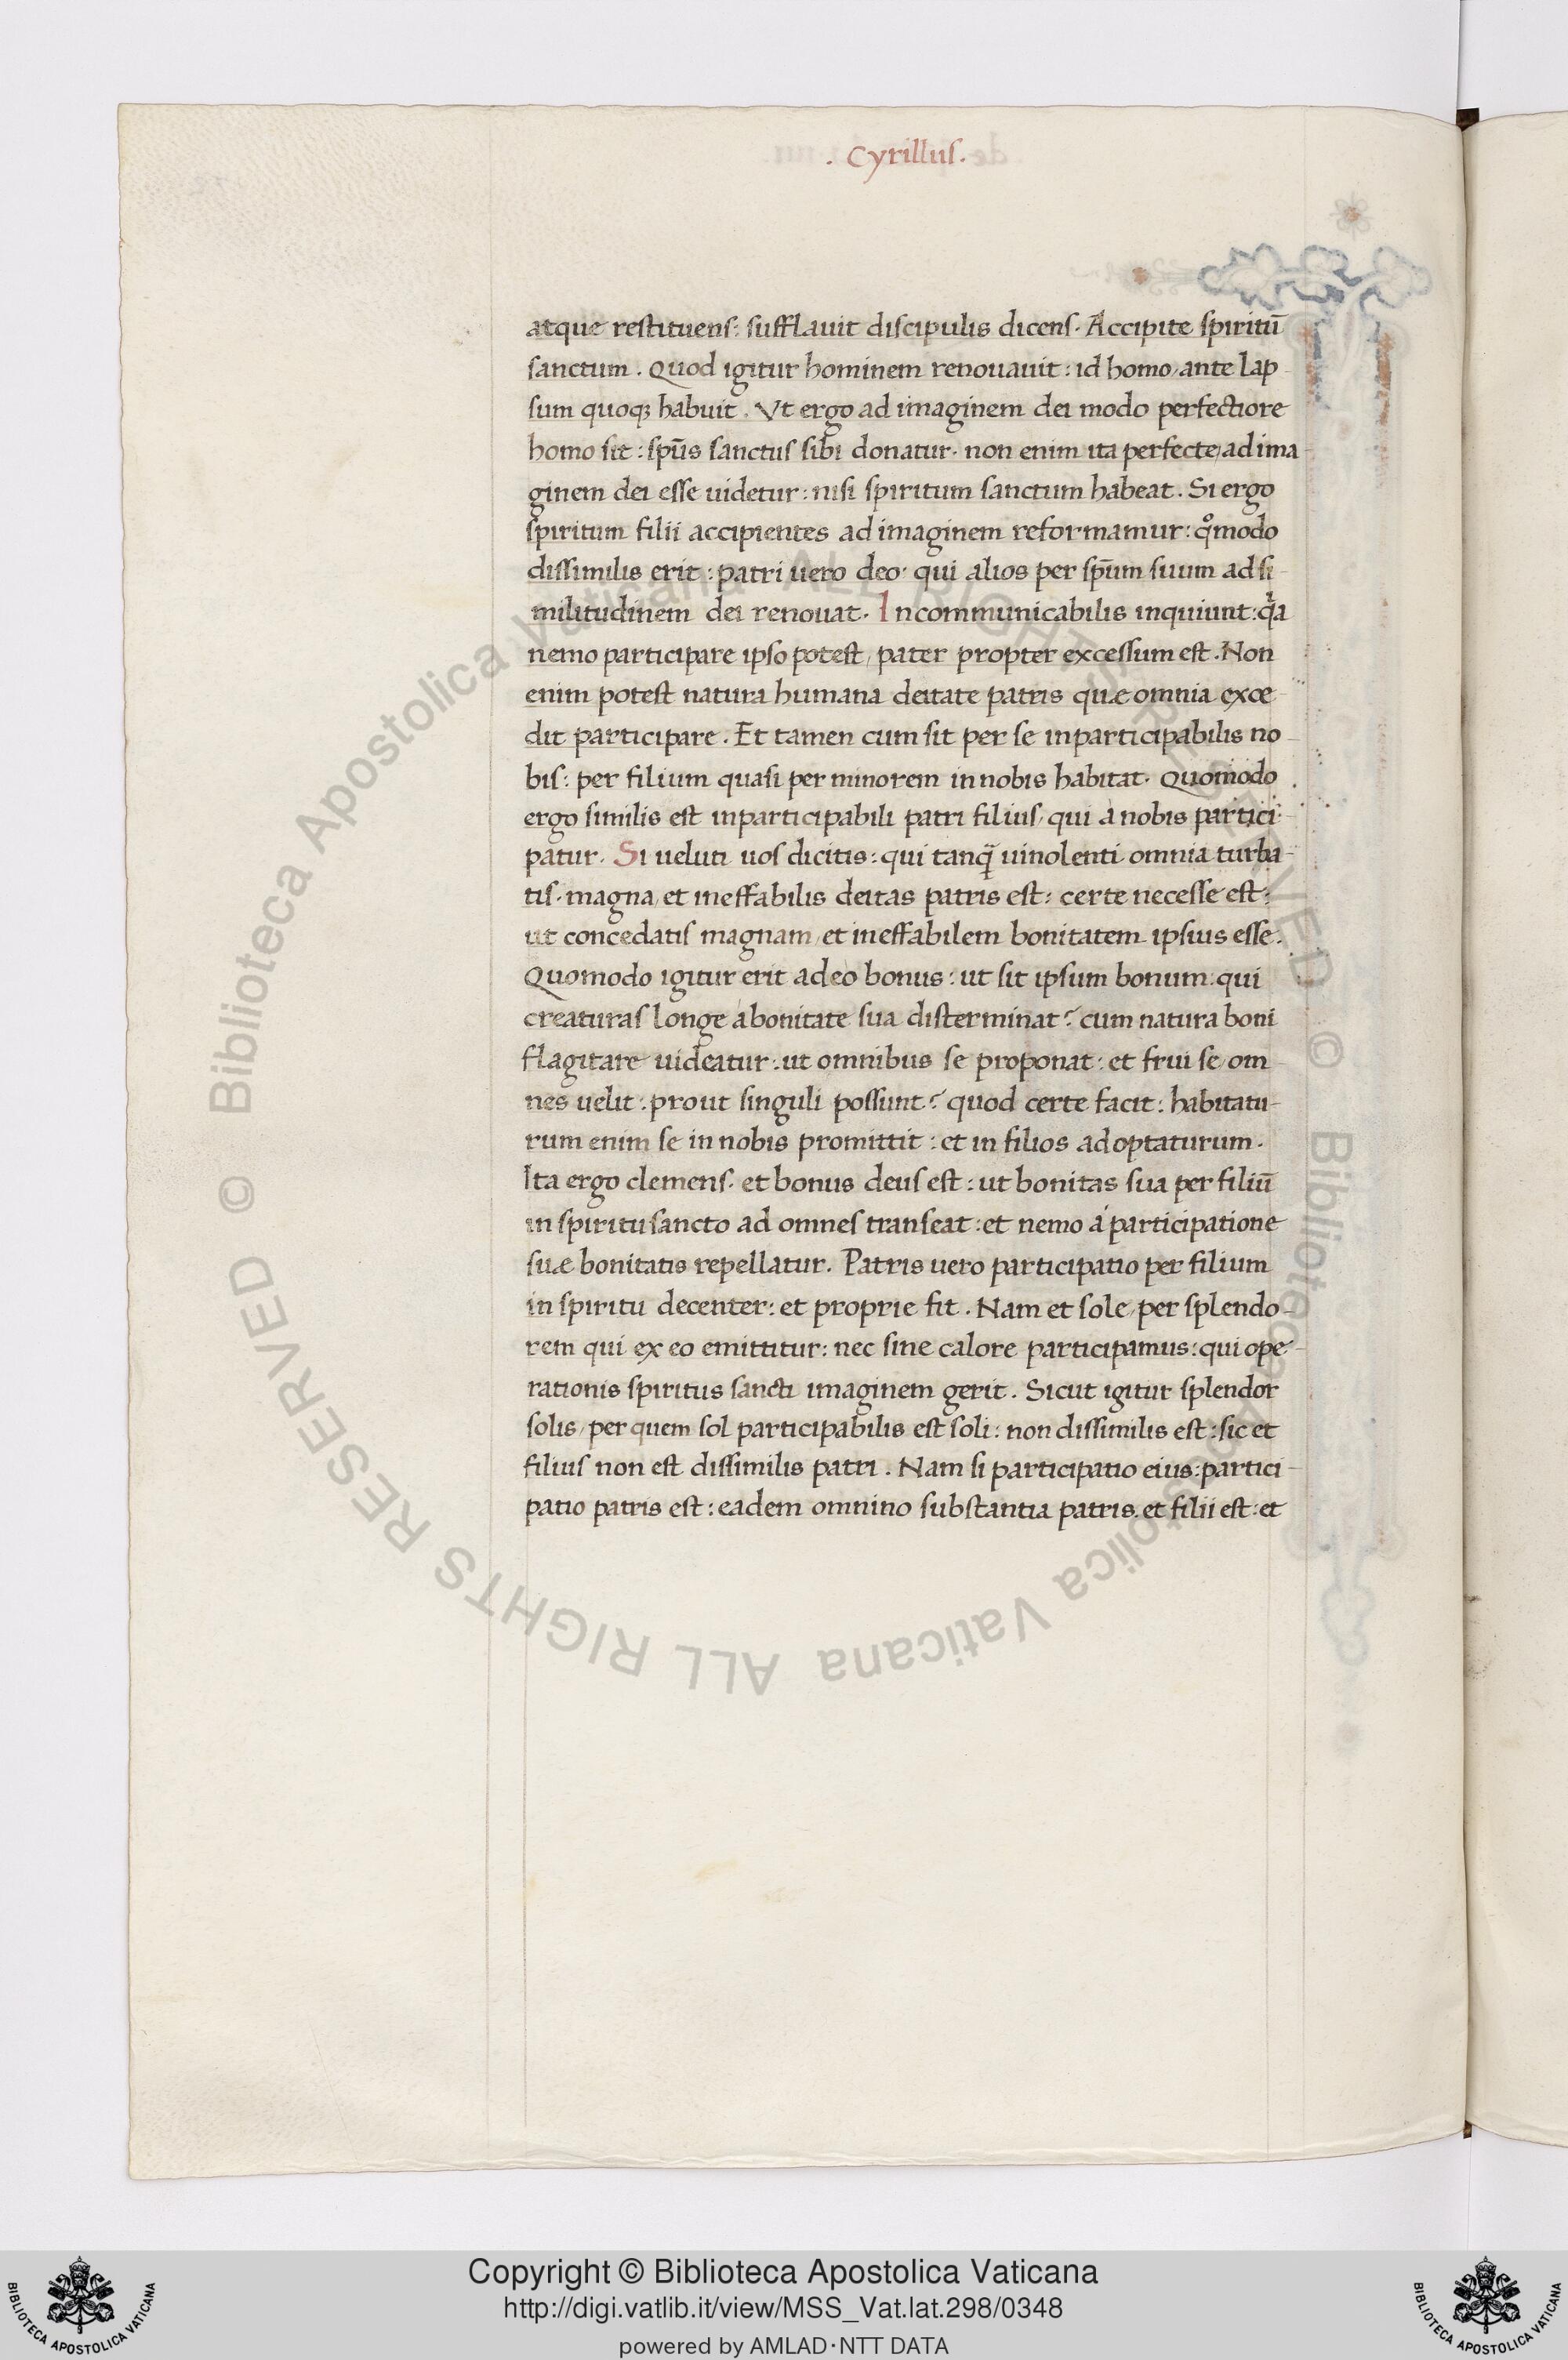 . Cyrillus .
atque restituens: sufflauit discipulis dicens. Accipite spiritū
sanctum. Quod igitur hominem renouauit: id homo, ante lap
sum quoqȝ habuit. Vt ergo ad imaginem dei modo perfectiore
homo sit: spūs sanctus sibi donatur. non enim ita perfecte, ad ima-
ginem dei esse uidetur: nisi spiritum sanctum habeat. Si ergo
spiritum filii accipientes ad imaginem reformamur: qͦmodo
dissimilis erit: patri uero deo. qui alios per spūm suum ad si-
militudinem dei renouat. Incommunicabilis inquiunt: qa
nemo participare ipso potest, pater propter excessum est. Non
enim potest natura humana deitate patris quæ omnia exce-
dit participare. Et tamen cum sit per se inparticipabilis no-
bis: per filium quasi per minorem in nobis habitat. Quomodo
ergo similis est inparticipabili patri filius, qui a nobis partici-
patur. Si ueluti uos dicitis: qui tanq̄ uinolenti omnia turba-
tis. magna, et ineffabilis deitas patris est: certe necesse est:
ut concedatis magnam, et ineffabilem bonitatem ipsius esse.
Quomodo igitur erit adeo bonus: ut sit ipsum bonum. qui
creaturas longe a bonitate sua disterminat? cum natura boni
flagitare uideatur: ut omnibus se proponat: et frui se, om-
nes uelit: prout singuli possunt? quod certe facit: habitatu-
rum enim se in nobis promittit: et in filios adoptaturum.
Ita ergo clemens. et bonus deus est: ut bonitas sua per filiū
in spiritu sancto ad omnes transeat: et nemo a participatione
suæ bonitatis repellatur. Patris uero participatio per filium
in spiritu decenter: et proprie fit. Nam et sole, per splendo-
rem qui ex eo emittitur: nec sine calore participamus: qui ope-
rationis spiritus sancti imaginem gerit. Sicut igitur splendor
solis, per quem sol participabilis est soli: non dissimilis est: sic et
filius non est dissimilis patri. Nam si participatio eius: partici-
patio patris est: eadem omnino substantia patris. et filii est: et
© Biblioteca Apostolica Vaticana ALL RIGHTS RESERVED © Biblioteca Apostolica Vaticana ALL RIGHTS RESERVED
BIBLIOTECA APOSTOLICA VATICANA
Copyright © Biblioteca Apostolica Vaticana
http://digi.vatlib.it/view/MSS_Vat.lat.298/0348
powered by AMLAD·NTT DATA
BIBLIOTECA APOSTOLICA VATICANA